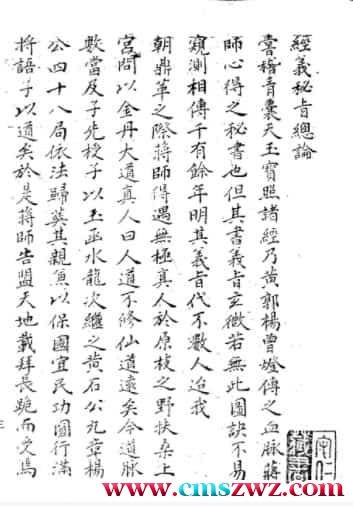 經義秘旨總論
嘗稽青囊天玉寶照諸經乃黃郭楊曾燈傳之血脉蔣
師心得之秘書也但其書義旨玄微若無此圖訣不易
窺測相傳千有餘年明其義旨代不數人迨我
朝鼎革之際蔣師得遇無極真人於原梭之野扶桑上
宮問以金丹大道真人曰人道不修仙道遠矣今道脉
數當及子先授子以玉函水龍次繼之黃石公九章楊
公四十八局依法歸塟其親兼以保國宜民功圓行滿
將語子以道矣於是蔣師告盟天地載拜長跪而受焉
守仁
藏書
www.cmszwz.com